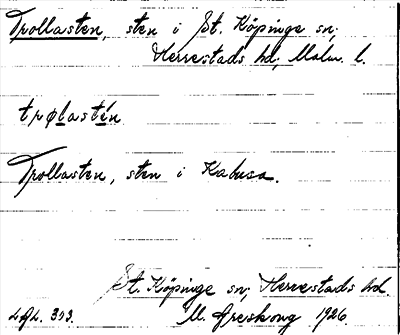 Trollasten, sten i St. Köpinge sn;
Herrestads hd, Malm. l.
trɷlastén
Trollasten, sten i Kabusa.
St. Köpinge sn, Herrestads hd.
LAL. 303. M. Areskoug 1926